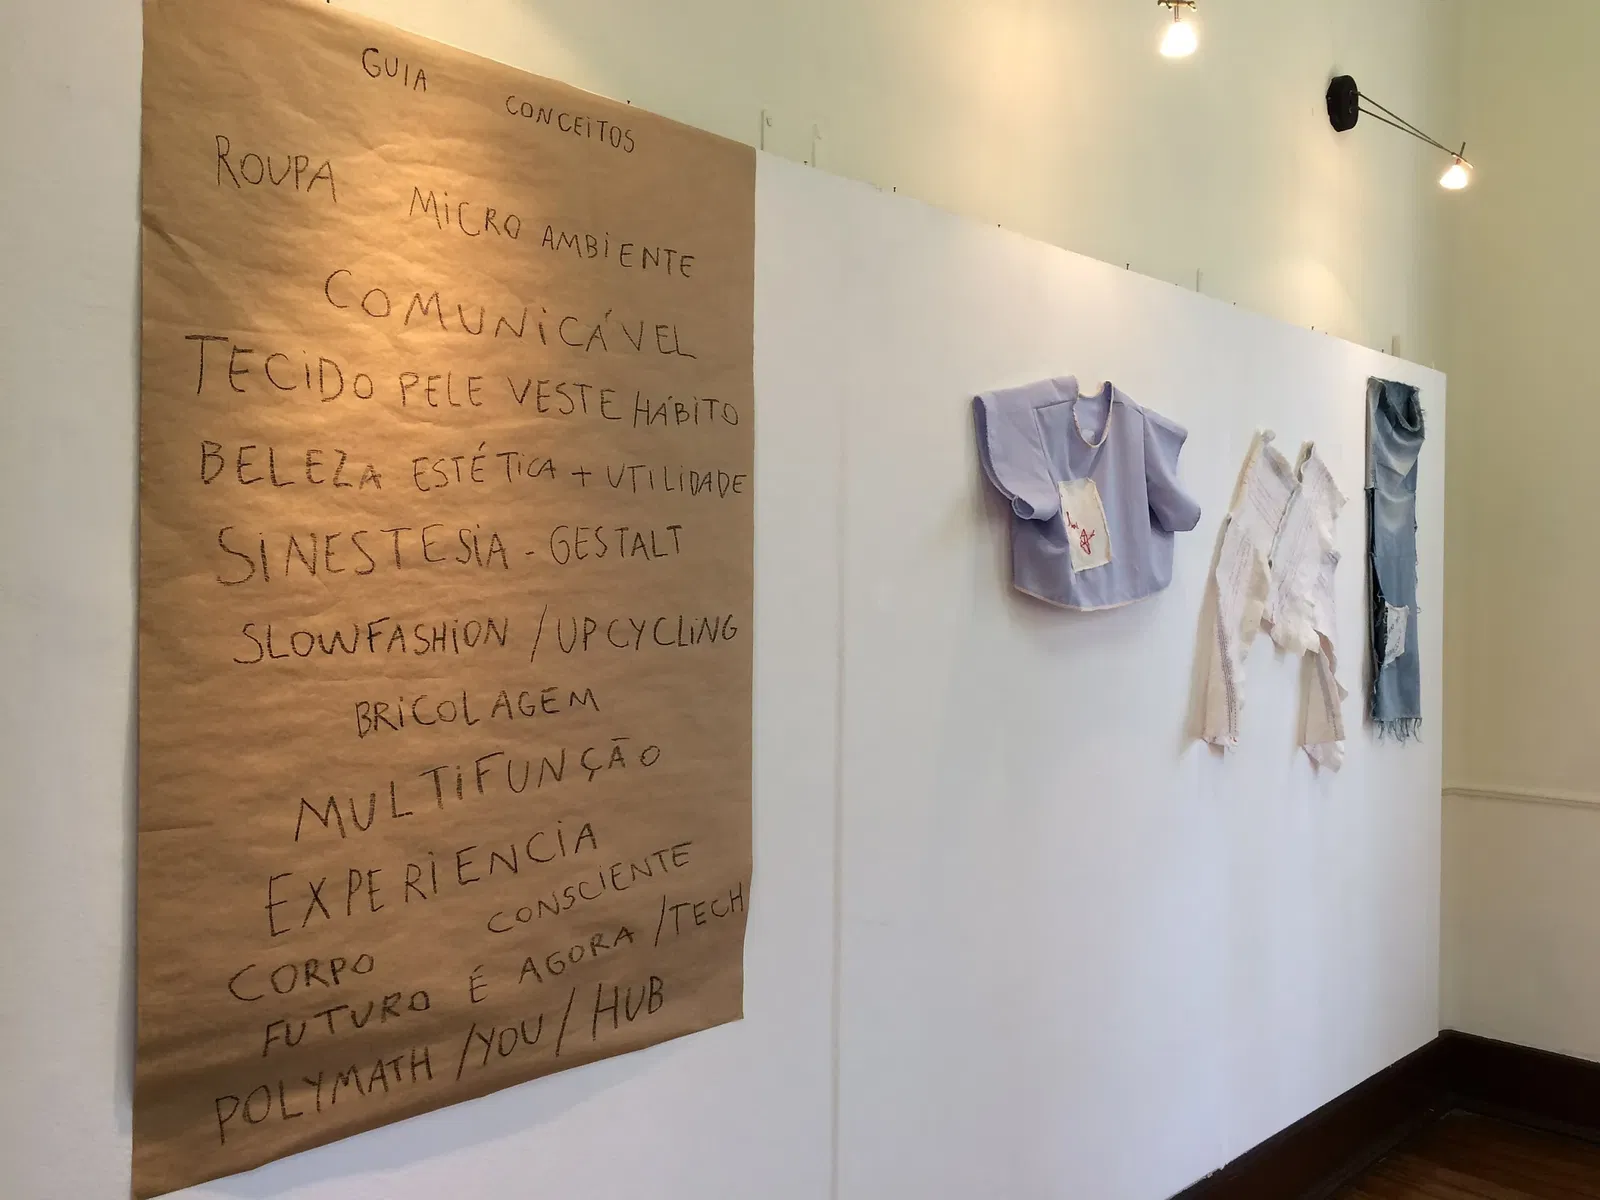 GUIA CONCEITOS
ROUPA MICRO AMBIENTE
COMUNICÁVEL
TECIDO PELE VESTE HÁBITO
BELEZA ESTÉTICA + UTILIDADE
SINESTESIA - GESTALT
SLOWFASHION / UPCYCLING
BRICOLAGEM
MULTIFUNÇÃO
EXPERIENCIA
CORPO CONSCIENTE
FUTURO É AGORA /TECH
POLYMATH /YOU / HUB